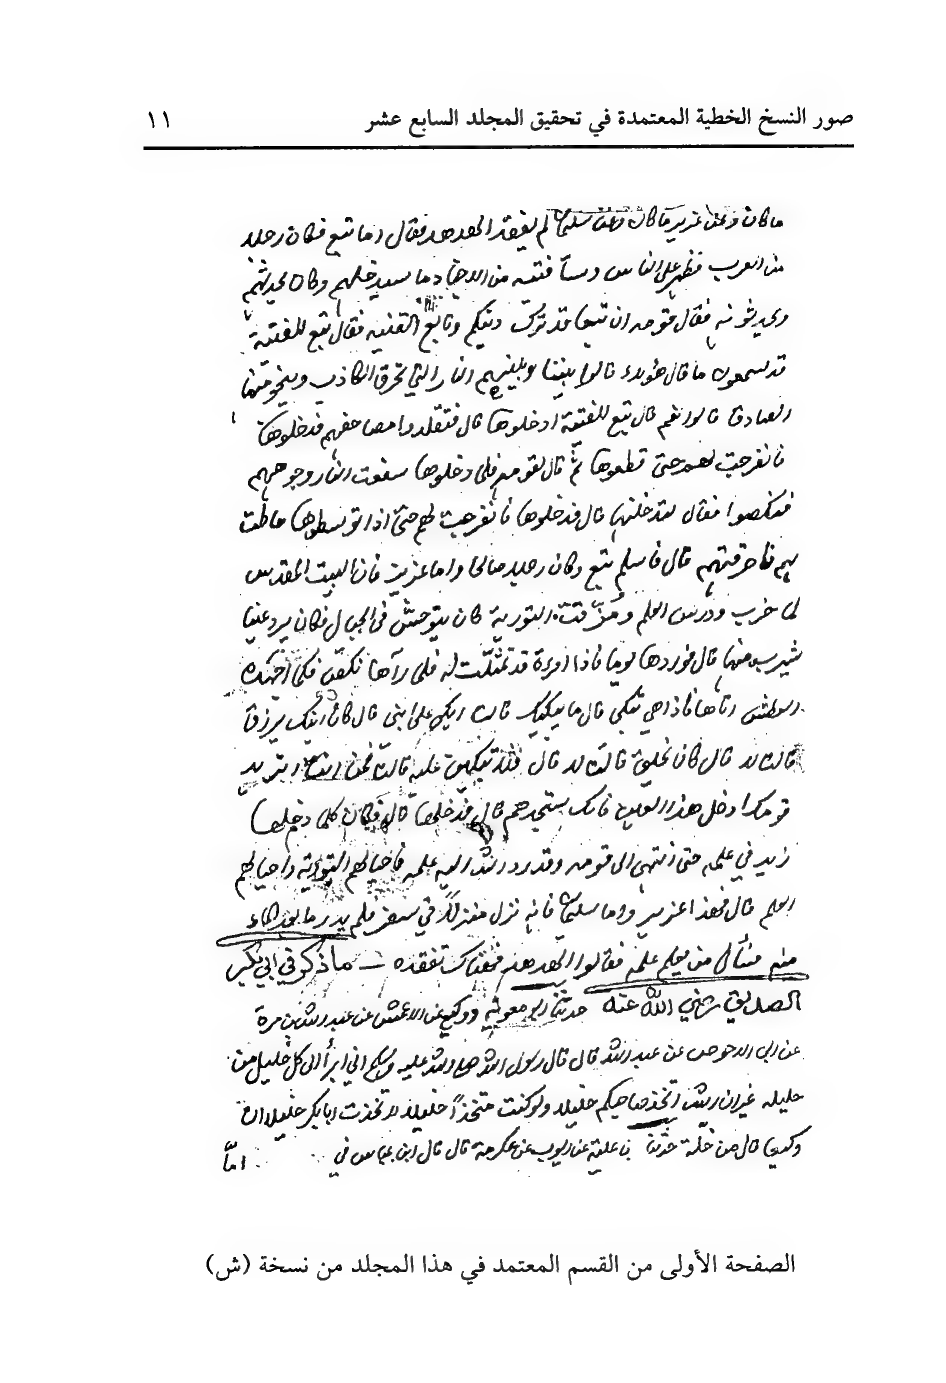 صور النسخ الخطية المعتمدة في تحقيق المجلد السابع عشر ١١
ما كان وعن عزير ما كان وعن سليمان لم يفقد الهدهد فقال اما تبع فكان رجلا
من العرب فظهر على الناس وسبا فتية من الاحبار فاستدخلهم وكان يحدثهم
ويحدثونه فقال قومه ان تبعا قد ترك دينكم وتابع الفتية فقال تبع للفتية
قد تسمعون ما قال هؤلاء قالوا بيننا وبينهم النار التي تحرق الكاذب وينجو منها
الصادق قالوا نعم قال تبع للفتية ادخلوها قال فتقلدوا مصاحفهم فدخلوها
فانفرجت لهم حتى قطعوها ثم قال لقومه فلما دخلوها سفعت النار وجوههم
فنكصوا فقال لتدخلنها قال فدخلوها فانفرجت لهم حتى اذا توسطوها احاطت
بهم فاحرقتهم قال فاسلم تبع وكان رجلا صالحا واما عزير فان البيت المقدس
لما خرب ودرس العلم ومزقت التورية كان يتوحش في الجبال فكان يرد عينا
يشرب منها قال فوردها يوما فاذا امرءة قد تمثلت له فلما رآها نكص فلما اجهده
العطش اتاها فاذا هي تبكي قال ما يبكيك قالت ابكي على ابني قال كان ابنك يرزق
قالت لا قال كان يخلق قالت لا قال فلا تبكين عليه قالت فمن انت اتريد
قومك ادخل هذه العين فانك ستجدهم قال فدخلها قال فكان كلما دخلها
زيد في علمه حتى انتهى الى قومه وقد رد الله اليه علمه فاحيا لهم التورية واحيا لهم
العلم قال فهذا عزير واما سليمان فانه نزل منزلا في سفر فلم يدر ما بعد الماء
منه فسأل من يعلم علمه فقالوا الهدهد فهناك تفقده ـــ ما ذكر في ابي بكر
الصديق رضي الله عنه حدثنا ابو معوية ووكيع عن الاعمش عن عبد الله بن مرة
عن ابي الاحوص عن عبد الله قال قال رسول الله صلى الله عليه وسلم اني ابرأ الى كل خليل من
خليله غير ان الله اتخذ صاحبكم خليلا ولو كنت متخذا خليلا لاتخذت ابا بكر خليلا الا ان
وكيعا قال من خلته حدثنا بن علية عن ايوب عن عكرمة قال قال ابن عباس في
اما
الصفحة الأولى من القسم المعتمد في هذا المجلد من نسخة (ش)